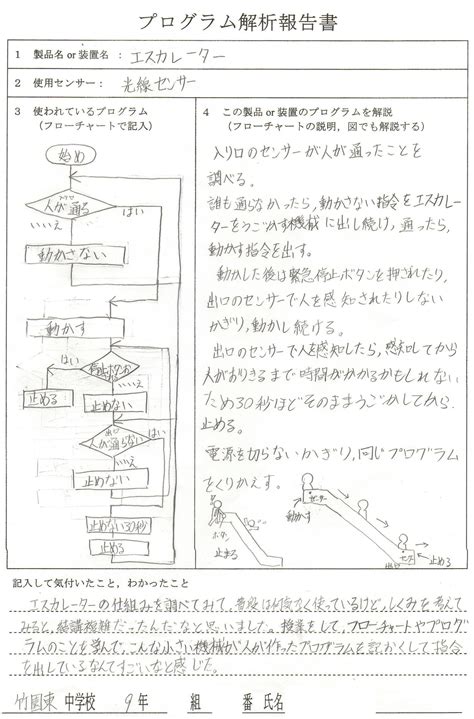 プログラム解析報告書
1 製品名 or 装置名：エスカレーター
2 使用センサー：光線センサー
3 使われているプログラム
（フローチャートで記入）
始め
人が通る
はい
いいえ
動かさない
動かす
はい
停止ボタン
いいえ
止める
止めない
出口
人が通らない
はい
いいえ
止めない
止めない30秒
止める
4 この製品 or 装置のプログラムを解説
（フローチャートの説明，図でも解説する）
入り口のセンサーが人が通ったことを
調べる。
誰も通らなかったら，動かさない指令をエスカレ
ーターをうごかす機械に出し続け，通ったら，
動かす指令を出す。
動かした後は緊急停止ボタンを押されたり，
出口のセンサーで人を感知されたりしない
かぎり，動かし続ける。
出口のセンサーで人を感知したら，感知してから
人がおりきるまで時間がかかるかもしれない
ため30秒ほどそのままうごかしてから
止める。
電源を切らないかぎり，同じプログラム
をくりかえす。
センサー
動かす
ボタン
止まる
センサー
止める
記入して気付いたこと，わかったこと
エスカレーターの仕組みを調べてみて，普段は何気なく使っているけど，しくみを考えて
みると，結構複雑だったんだなと思いました。授業をして，フローチャートやプログ
ラムのことを学んで，こんな小さい機械が人が作ったプログラムを記おくして指令
を出しているなんてすごいなと感じた。
竹園東 中学校 9年 組 番 氏名